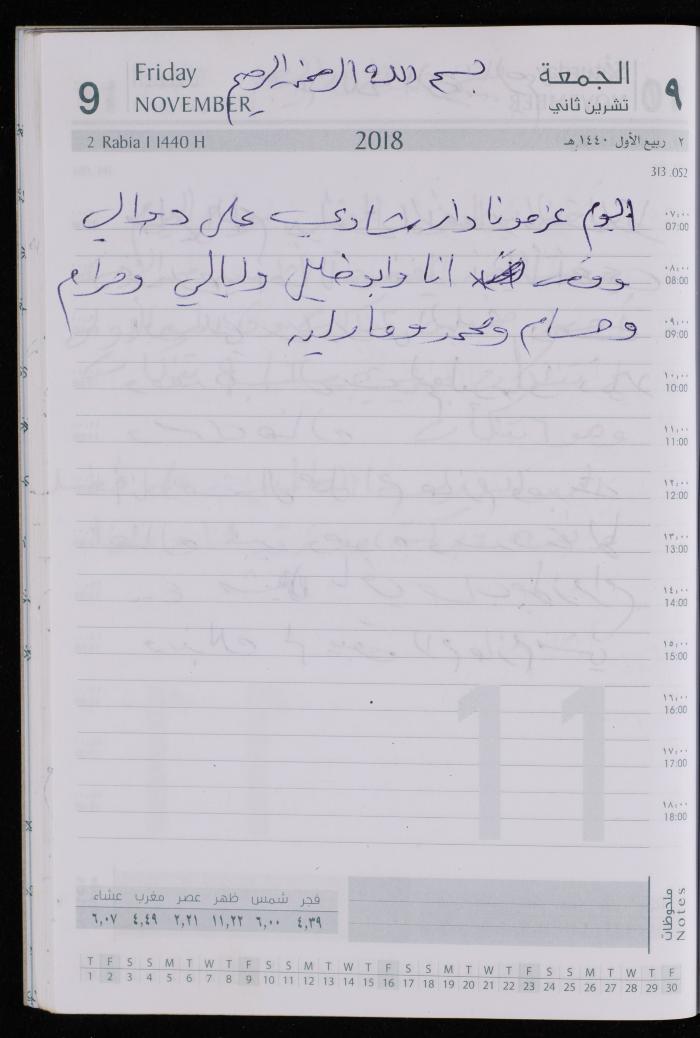 9
Friday
NOVEMBER
بسم الله الرحمن الرحيم
الجمعة
تشرين ثاني
٩
2 Rabia I 1440 H
2018
٢ ربيع الأول ١٤٤٠هـ
313 .052
اليوم عزمونا دار شادي على دوالي
انا وابو خليل وليالي ومرام
وحسام ومحمد ومارلين
٠٧:٠٠
07:00
٠٨:٠٠
08:00
٠٩:٠٠
09:00
١٠:٠٠
10:00
١١:٠٠
11:00
١٢:٠٠
12:00
١٣:٠٠
13:00
١٤:٠٠
14:00
١٥:٠٠
15:00
١٦:٠٠
16:00
١٧:٠٠
17:00
١٨:٠٠
18:00
11
فجر شمس ظهر عصر مغرب عشاء
٤,٣٩ ٦,٠٠ ١١,٢٢ ٢,٢١ ٤,٤٩ ٦,٠٧
ملحوظات
Notes
T F S S M T W T F S S M T W T F S S M T W T F S S M T W T F
1 2 3 4 5 6 7 8 9 10 11 12 13 14 15 16 17 18 19 20 21 22 23 24 25 26 27 28 29 30